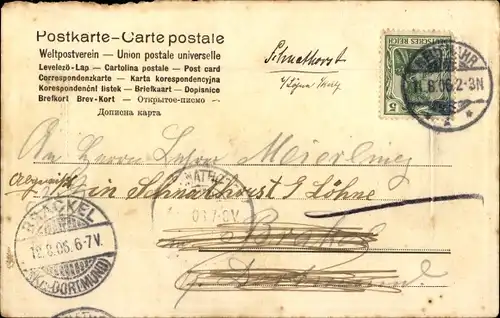 Postkarte – Carte postale
Weltpostverein — Union postale universelle
Levelező-Lap — Cartolina postale — Post card
Correspondenzkarte — Karta korespondencyjna
Korespondenční lístek — Briefkaart — Dopisnice
Brefkort Brev-Kort — Открытое-письмо —
Дописна карта
Schnathorst
DEUTSCHES REICH
5
11.8.06.2-3N
An Herrn Lehrer Meierling
in Schnathorst b/ Löhne
BRACKEL
12.8.06.6-7V.
(KR. DORTMUND)
Brakel
Dortmund